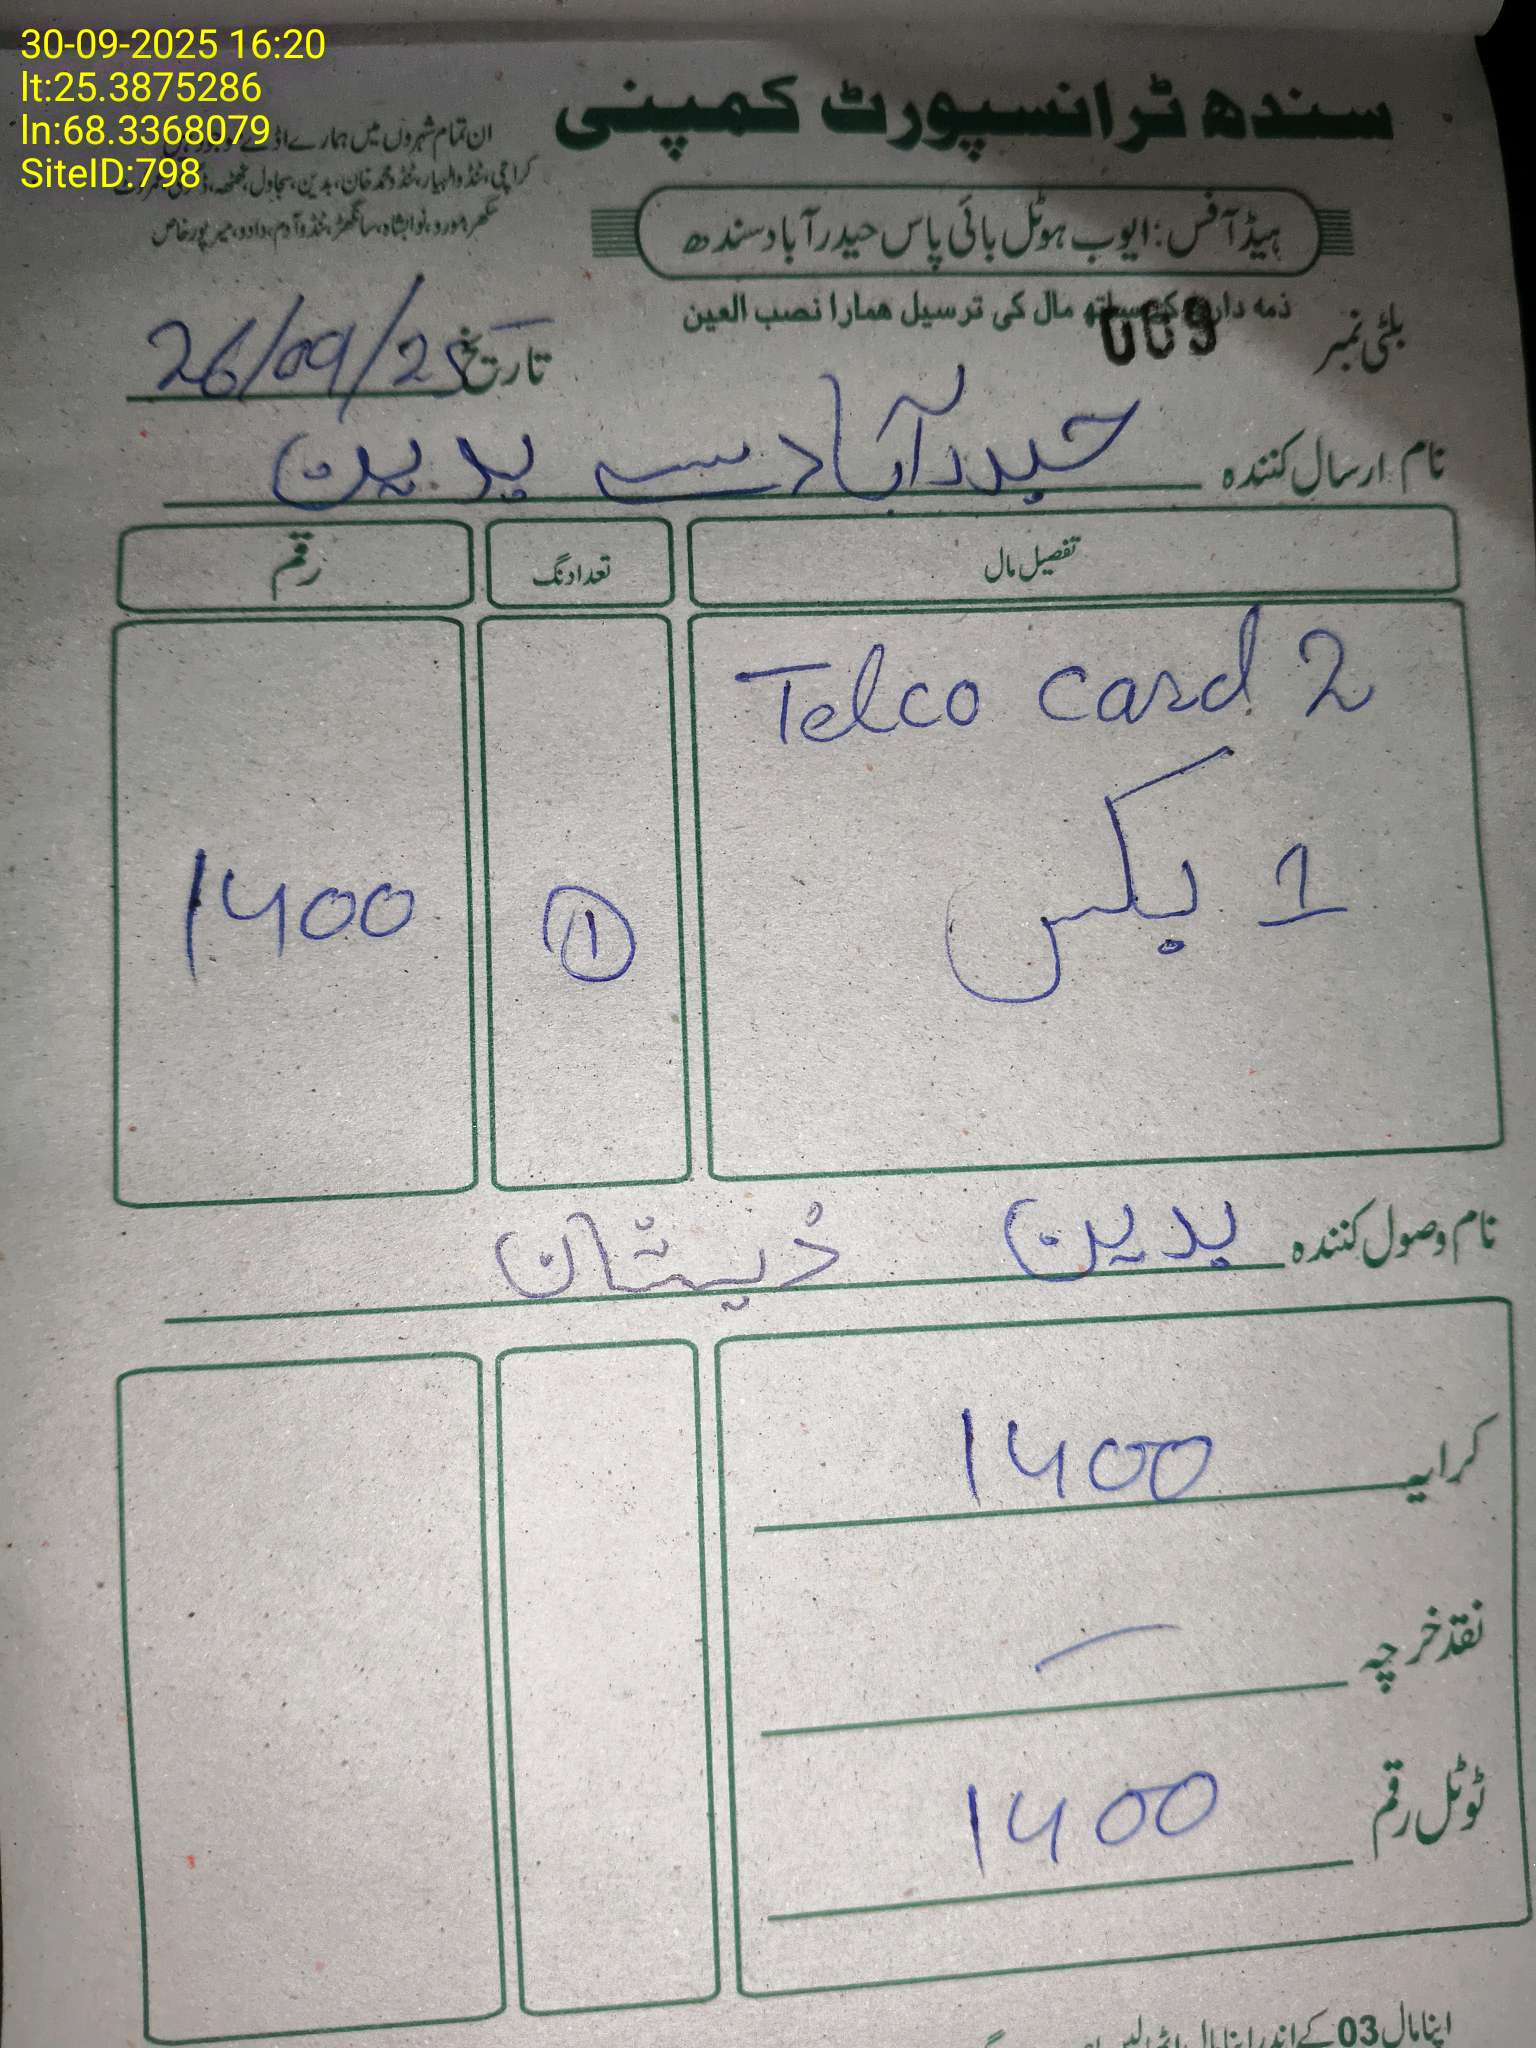 30-09-2025 16:20
lt:25.3875286
ln:68.3368079
SiteID:798
سندھ ٹرانسپورٹ کمپنی
ان تمام شہروں میں ہمارے اڈے
کراچی، ٹنڈوالہیار، ٹنڈو محمد خان، بدین، سجاول، ٹھٹھہ،
سکھر، مورو، نوابشاہ، سانگھڑ، ٹنڈوآدم، دادو، میرپورخاص
ہیڈ آفس: ایوب ہوٹل بائی پاس حیدرآباد سندھ
ذمہ داری کے ساتھ مال کی ترسیل ہمارا نصب العین
بلٹی نمبر 009
تاریخ 26/09/25
نام ارسال کنندہ حیدرآباد سے بدین
تفصیل مال تعداد نگ رقم
Telco card 2
1 بکس 1 1400
نام وصول کنندہ بدین ذیشان
کرایہ 1400
نقد خرچہ —
ٹوٹل رقم 1400
اپنا مال 03 کے اندر اپنا مال